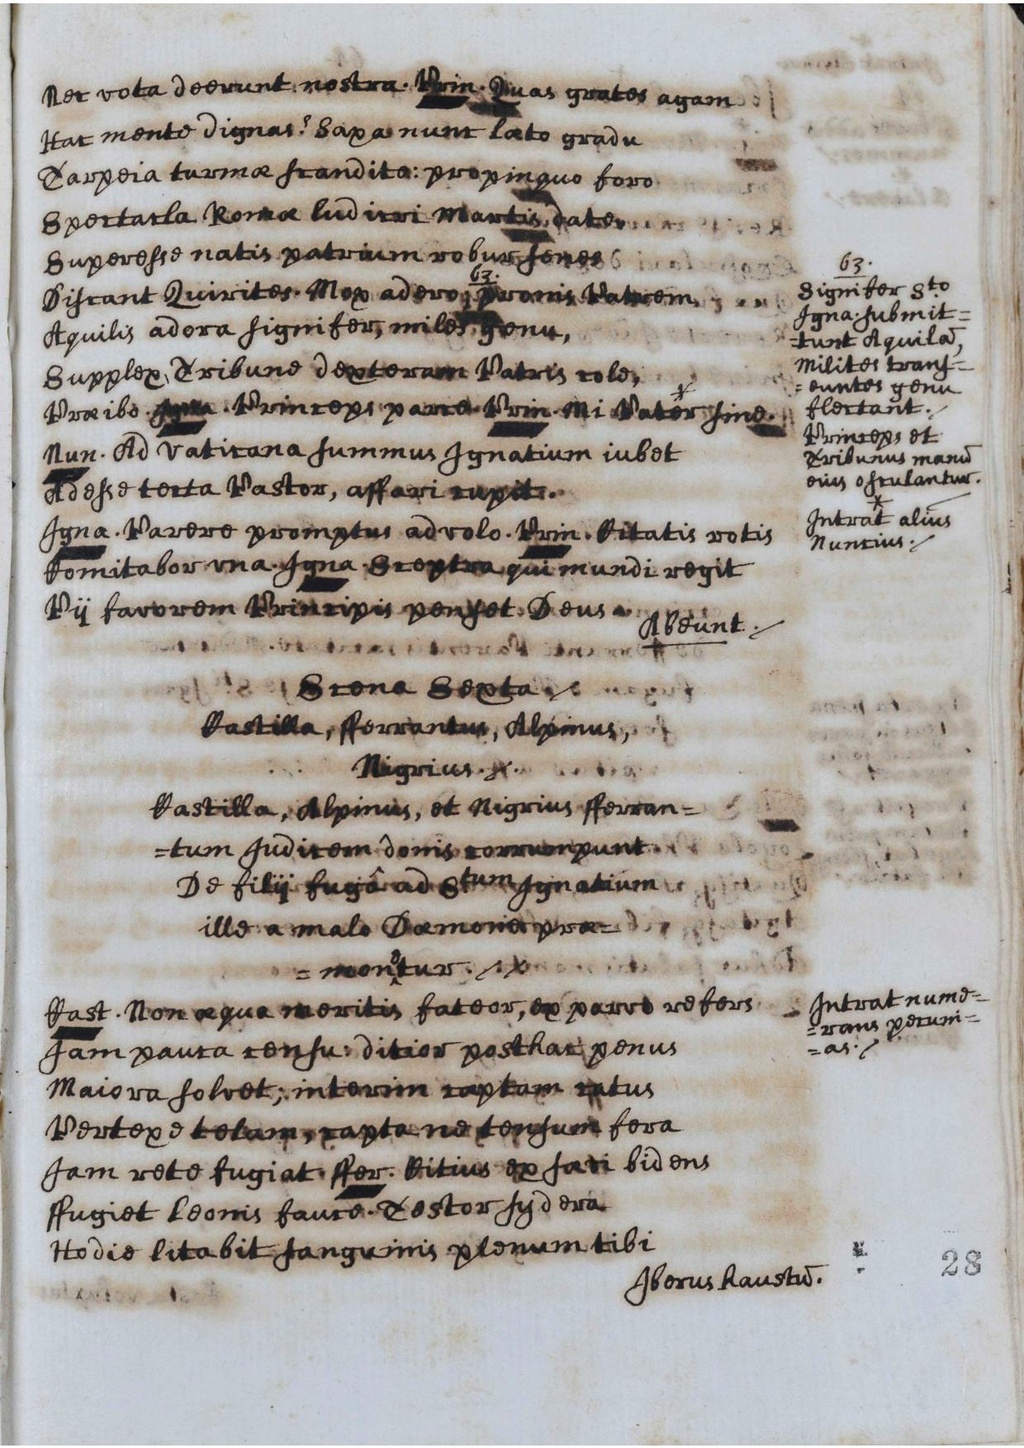 Nec vota deerunt nostra. Prin. Quas grates agam
Hac mente dignas? Saxa nunc læto gradu
Tarpeia turmæ scandite: propinquo foro
Spectacla Romæ ludicri Martis date,
Superesse natis patrium robur senes
Discant Quirites. Mox adero, 63. pronis Patrem
Aquilis adora signifer, miles genu,
Supplex Tribune dexteram Patris cole,
Præibo. Igna. Princeps parce. Prin. Mi Pater sine.
Nun. Ad Vaticana summus Ignatium iubet
Adesse tecta Pastor, affari cupit.
Igna. Parere promptus advolo. Prin. Citatis rotis
Comitabor vna. Igna. Sceptra qui mundi regit
Pij favorem Principis penset Deus.
Abeunt.
63.
Signifer Sto
Igna. submit=
=tunt Aquilā,
Milites trans=
=euntes genu
flectant.
Princeps et
Tribunus manū
eius osculantur.
*
Intrat alius
Nuncius.
Scena Sexta
Castilla, fferrantus, Alpinus,
Nigrius.
Castilla, Alpinus, et Nigrius fferran=
=tum Judicem donis corrumpunt.
De filij fugâ ad Stum Ignatium
ille a malo Dæmone præ=
=monetur.
Cast. Non æqua meritis fateor, ex parvo refers
Jam pauca censu: ditior posthac penus
Maiora solvet; interim captam ratus
Pertexe telam, capta ne tensum fera
Jam rete fugiat. ffer. Citius ex sævi bidens
ffugiet Leonis fauce. Testor sydera
Hodie litabit sanguinis plenum tibi
Iberus haustū.
Intrat nume=
=rans pecuni=
=as.
28